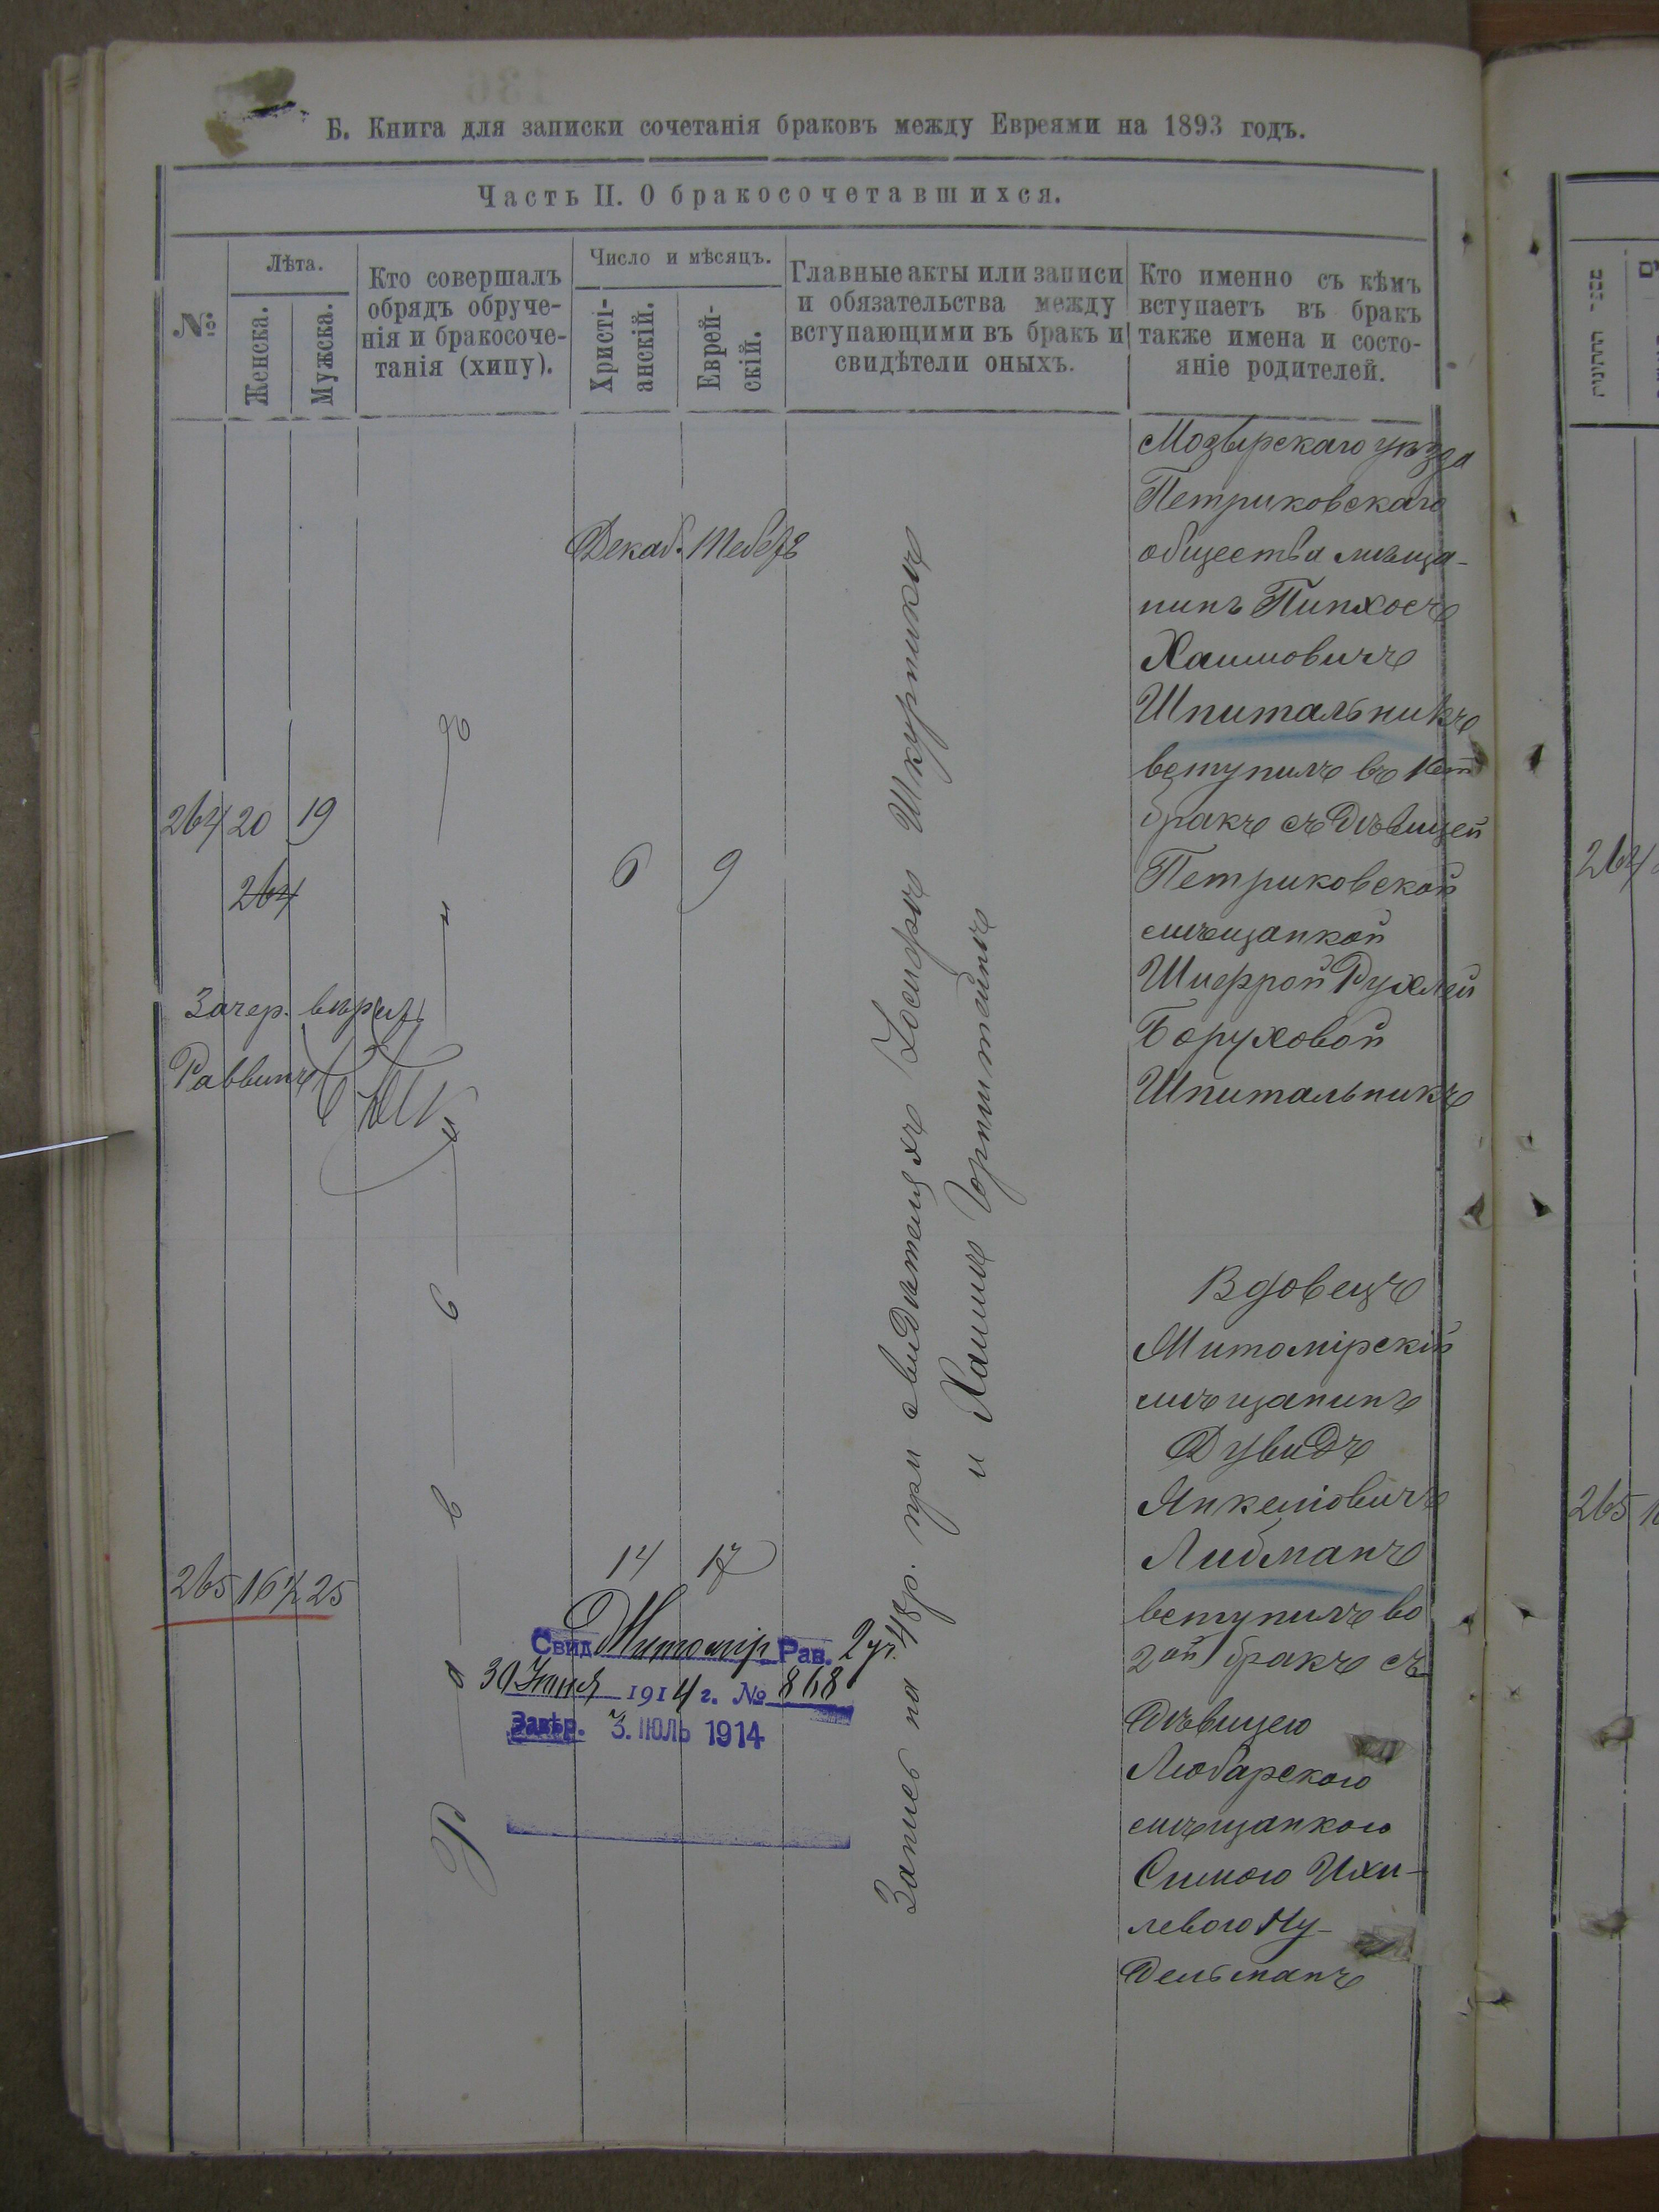 Б. Книга для записки сочетанія браковъ между Евреями на 1893 годъ.
Часть II. О бракосочетавшихся.
№
Лѣта.
Женска.
Мужска.
Кто совершалъ
обрядъ обруче-
нія и бракосоче-
танія (хипу).
Число и мѣсяцъ.
Христі-
анскій.
Еврей-
скій.
Главные акты или записи
и обязательства между
вступающими въ бракъ и
свидѣтели оныхъ.
Кто именно съ кѣмъ
вступаетъ въ бракъ
также имена и состо-
яніе родителей.
Декаб. Тебетъ
264 20 19
264
6 9
Зачер. вѣрить
Раввинъ
Раввинъ
Запись на 48 р. при свидѣтеляхъ Іосифѣ Шкурникѣ
и Хаимѣ Горнштейнѣ
Мозырскаго уѣзда
Петриковскаго
общества мѣща-
нинъ Пинхосъ
Хаимовичъ
Шпитальникъ
вступилъ въ 1ый
бракъ съ дѣвицей
Петриковской
мѣщанкой
Шифрой Рухлей
Боруховой
Шпитальникъ
265 16½ 25
14 17
Вдовецъ
Житомірскій
мѣщанинъ
Дувидъ
Янкеліовичъ
Либманъ
вступилъ во
2ой бракъ съ
дѣвицею
Любарскою
мѣщанкою
Симою Ихи-
левою Ну-
дельманъ
Свид Житомір Рав.
30 Іюня 1914 г. № 868
Завѣр. 3. ІЮЛЬ 1914
264
265